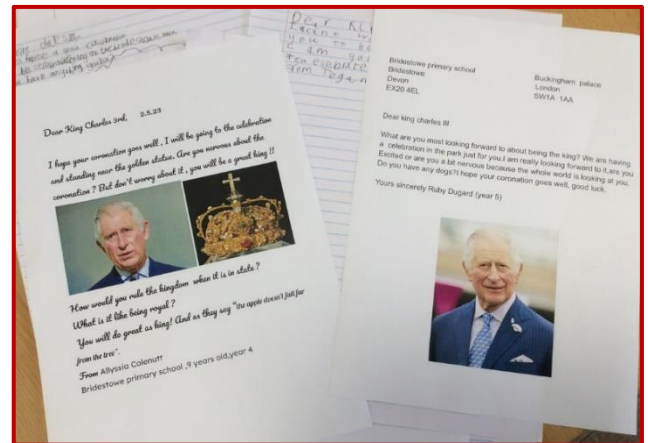 Dear King Charles 3rd, 2.5.23
I hope your coronation goes well, I will be going to the celebration
and standing near the golden statue. Are you nervous about the
coronation? But don't worry about it, you will be a great king!!
How would you rule the kingdom when it is in state?
What is it like being royal?
You will do great as king! And as they say "the apple doesn't fall far
from the tree".
From Allyssia Colenutt
Bridestowe primary school ,9 years old,year 4
Bridestowe primary school
Bridestowe
Devon
EX20 4EL
Buckingham palace
London
SW1A 1AA
Dear king charles III
What are you most looking forward to about being the king? We are having
a celebration in the park just for you.I am really looking forward to it,are you
Excited or are you a bit nervous because the whole world is looking at you.
Do you have any dogs?I hope your coronation goes well, good luck.
Yours sincerely Ruby Dugard (year 5)